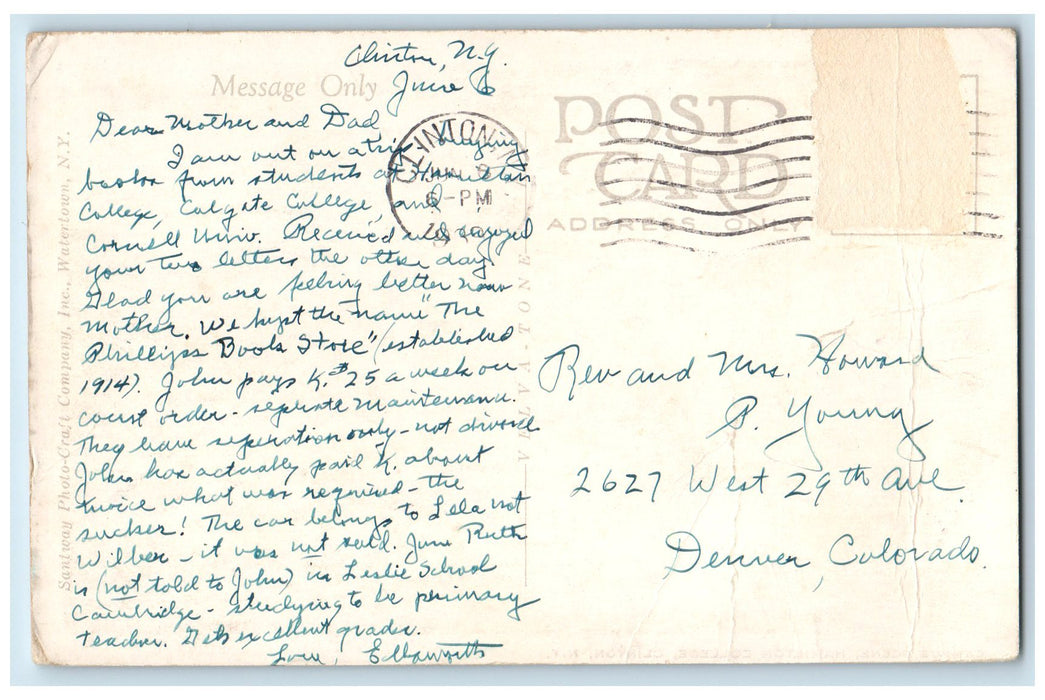 Clinton, N.Y.
June 6
Message Only
Dear Mother and Dad,
I am out on a trip buying
books from students at Hamilton
College, Colgate College, and
Cornell Univ. Received and enjoyed
your two letters the other day.
Glad you are feeling better now
Mother. We kept the name "The
Phillips Book Store" (established
1914). John pays K. $25 a week on
court order - seperate maintenance.
They have seperation only - not divorce
John has actually paid K. about
twice what was required - the
sucker! The car belongs to Lela not
Wilber - it was not sold. June Ruth
is (not told to John) in Leslie School
Cambridge - studying to be primary
teacher. Gets excellent grades.
Love, Ellsworth
Santway Photo-Craft Company, Inc., Watertown, N.Y.
VELVA-TONE
CLINTON
6-PM
POST
CARD
ADDRESS ONLY
Rev and Mrs. Howard
P. Young
2627 West 29th Ave.
Denver, Colorado.
CAMPUS SCENE, HAMILTON COLLEGE, CLINTON, N.Y.